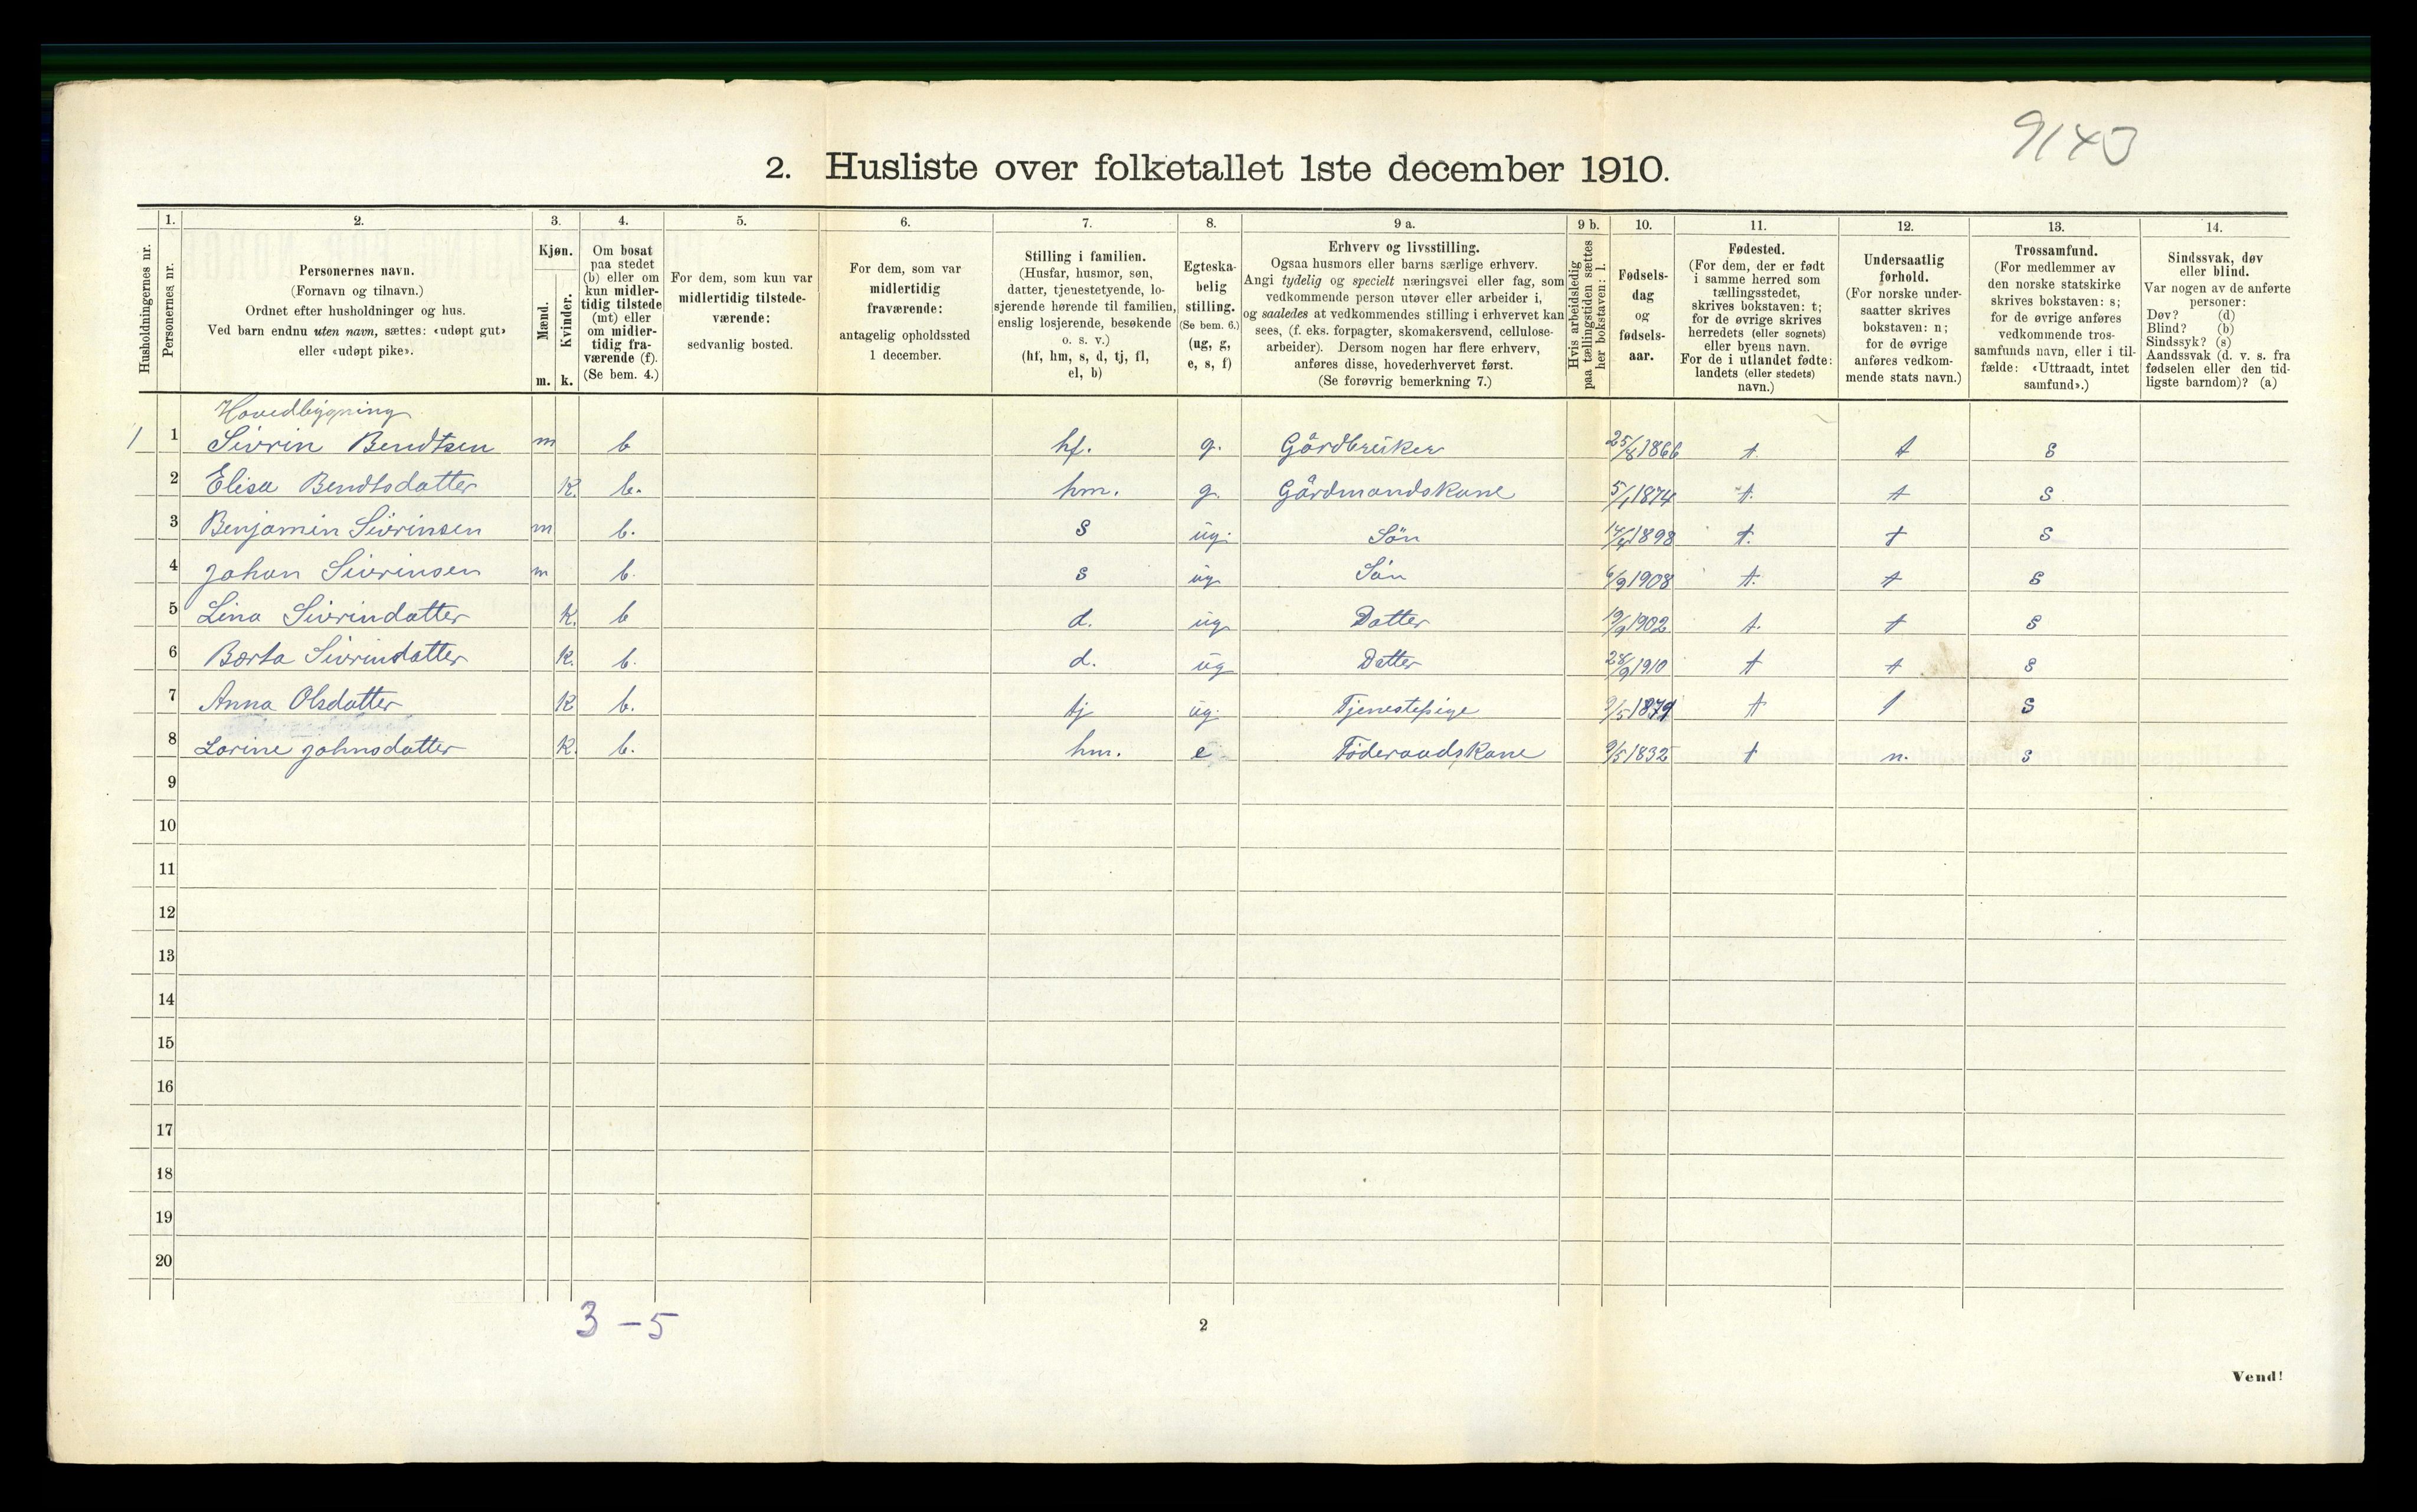 9143
2. Husliste over folketallet 1ste december 1910.
Husholdningernes nr.
1.
Personernes nr.
2.
Personernes navn.
(Fornavn og tilnavn.)
Ordnet efter husholdninger og hus.
Ved barn endnu uten navn, sættes: «udøpt gut»
eller «udøpt pike».
3.
Kjøn.
Mænd.
Kvinder.
m. k.
4.
Om bosat
paa stedet
(b) eller om
kun midler-
tidig tilstede
(mt) eller
om midler-
tidig fra-
værende (f).
(Se bem. 4.)
5.
For dem, som kun var
midlertidig tilstede-
værende:
sedvanlig bosted.
6.
For dem, som var
midlertidig
fraværende:
antagelig opholdssted
1 december.
7.
Stilling i familien.
(Husfar, husmor, søn,
datter, tjenestetyende, lo-
sjerende hørende til familien,
enslig losjerende, besøkende
o. s. v.)
(hf, hm, s, d, tj, fl,
el, b)
8.
Egteska-
belig
stilling.
(Se bem. 6.)
(ug, g,
e, s, f)
9 a.
Erhverv og livsstilling.
Ogsaa husmors eller barns særlige erhverv.
Angi tydelig og specielt næringsvei eller fag, som
vedkommende person utøver eller arbeider i,
og saaledes at vedkommendes stilling i erhvervet kan
sees, (f. eks. forpagter, skomakersvend, cellulose-
arbeider). Dersom nogen har flere erhverv,
anføres disse, hovederhvervet først.
(Se forøvrig bemerkning 7.)
9 b.
Hvis arbeidsledig
paa tællingstiden sættes
her bokstaven: l.
10.
Fødsels-
dag
og
fødsels-
aar.
11.
Fødested.
(For dem, der er født
i samme herred som
tællingsstedet,
skrives bokstaven: t;
for de øvrige skrives
herredets (eller sognets)
eller byens navn.
For de i utlandet fødte:
landets (eller stedets)
navn.)
12.
Undersaatlig
forhold.
(For norske under-
saatter skrives
bokstaven: n;
for de øvrige
anføres vedkom-
mende stats navn.)
13.
Trossamfund.
(For medlemmer av
den norske statskirke
skrives bokstaven: s;
for de øvrige anføres
vedkommende tros-
samfunds navn, eller i til-
fælde: «Uttraadt, intet
samfund».)
14.
Sindssvak, døv
eller blind.
Var nogen av de anførte
personer:
Døv? (d)
Blind? (b)
Sindssyk? (s)
Aandssvak (d. v. s. fra
fødselen eller den tid-
ligste barndom)? (a)
Hovedbygning
1 1 Sivrin Bendtsen m b hf. g. Gårdbruker 1866 t t s
2 Elisa Bendtsdatter K. b. hm. g. Gårdmandskone 5/1 1874 t. t s
3 Benjamin Sivrinsen m b. s ug. Sön 14/4 1898 t. t s
4 Johan Sivrinsen m b. s ug Sön 6/9 1908 t. t s
5 Lina Sivrindatter K. b d. ug Datter 19/9 1902 t. t s
6 Berta Sivrindatter K. b. d. ug Datter 28/9 1910 t t s
7 Anna Olsdatter K b. tj ug. Tjenestepige 9/5 1879 t t s
8 Lorine Johnsdatter K. b. hm. e Föderaadskone 9/5 1832 t n. s
9
10
11
12
13
14
15
16
17
18
19
20
3 – 5
2
Vend!